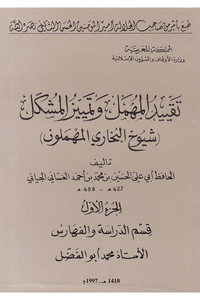 طبع بأمر من صاحب الجلالة أمير المؤمنين الحسن الثاني نصره الله
المملكة المغربية
وزارة الأوقاف والشؤون الإسلامية
تقييد المهمل وتمييز المشكل
(شيوخ البخاري المهملون)
تأليف
الحافظ أبي علي الحسين بن محمد بن أحمد الغساني الجياني
427هـ - 498هـ
الجزء الأول
قسم الدراسة والفهارس
الأستاذ محمد أبو الفضل
1418هـ - 1997م